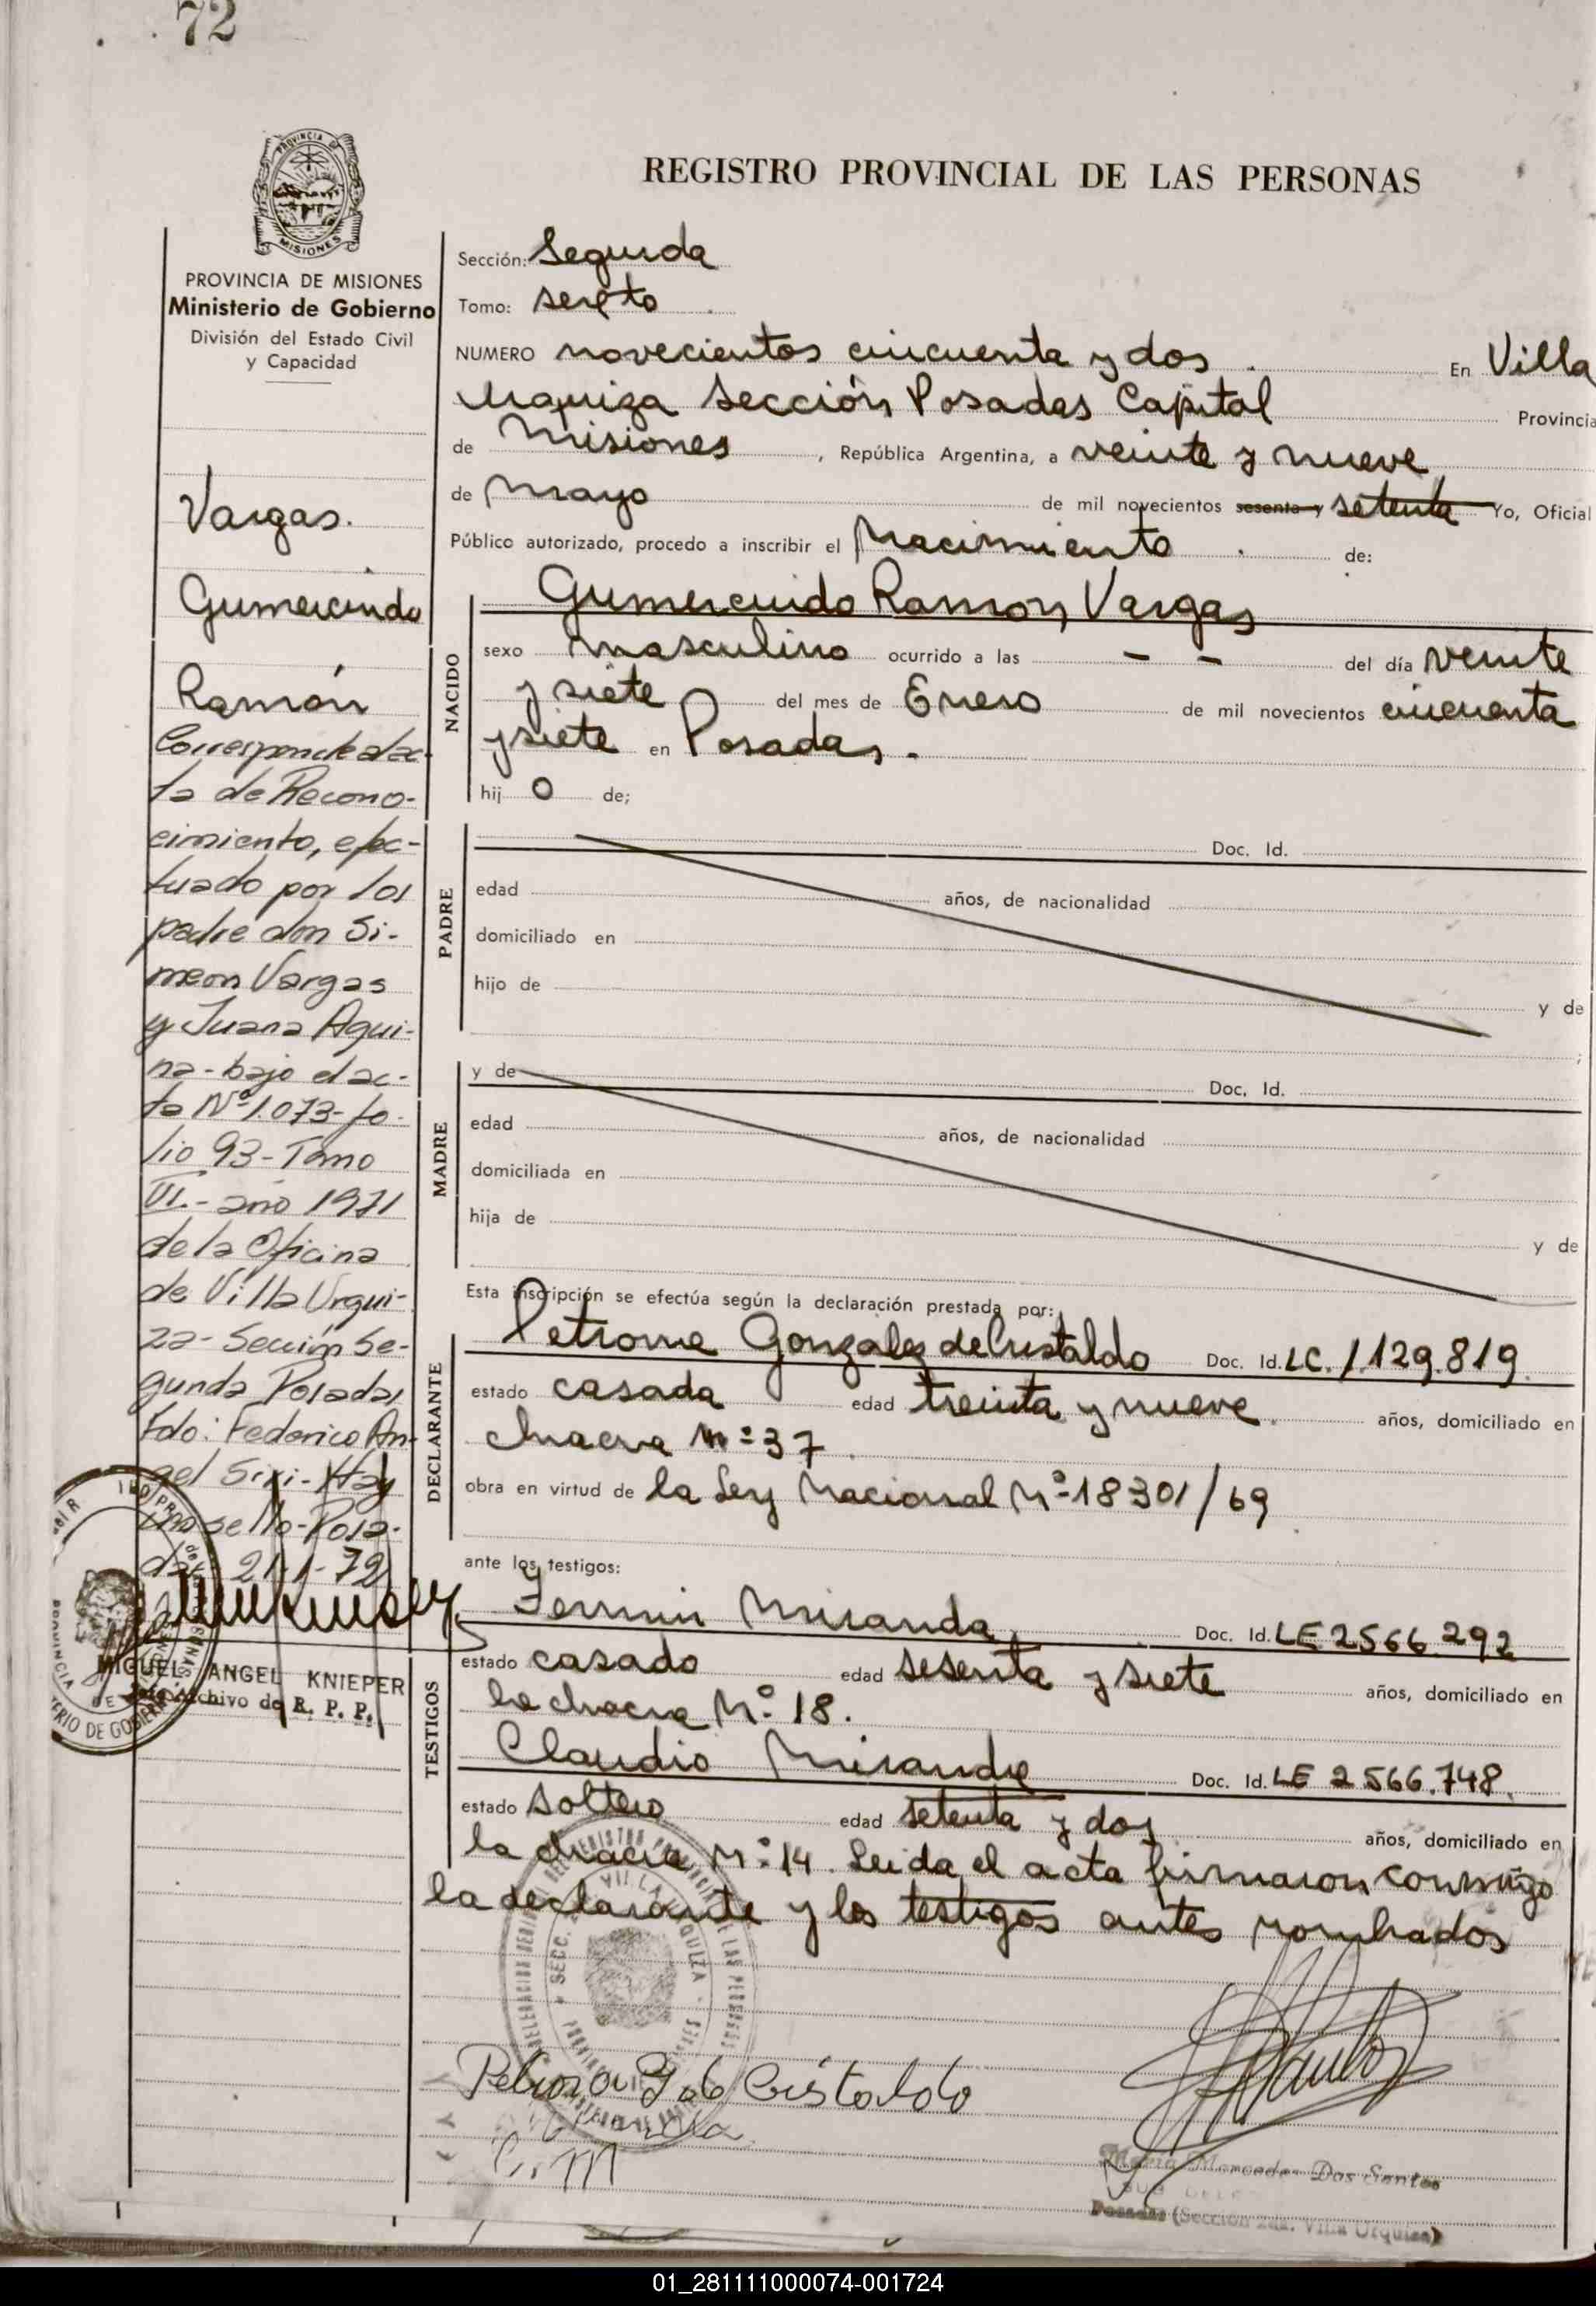 72
REGISTRO PROVINCIAL DE LAS PERSONAS
PROVINCIA MISIONES
PROVINCIA DE MISIONES
Ministerio de Gobierno
División del Estado Civil
y Capacidad
Vargas.
Gumercindo
Ramón
Corresponde al ac-
ta de Recono-
cimiento, efec-
tuado por los
padre don Si-
meon Vargas
y Juana Aqui-
na - bajo el ac-
ta Nº 1.073 - fo-
lio 93 - Tomo
VI. - año 1971
de la Oficina
de Villa Urqui-
za - Sección Se-
gunda Posadas
Fdo: Federico An-
gel Sixi - Hay
un sello - Posa-
das 21-1-72
MIGUEL ANGEL KNIEPER
Archivo de R. P. P.
Sección: Segunda
Tomo: sexto
NUMERO novecientos cincuenta y dos. En Villa
Urquiza Sección Posadas Capital Provincia
de Misiones, República Argentina, a veinte y nueve
de Mayo de mil novecientos sesenta y setenta Yo, Oficial
Público autorizado, procedo a inscribir el Nacimiento de:
NACIDO
Gumercindo Ramon Vargas
sexo masculino ocurrido a las - - del día veinte
y siete del mes de Enero de mil novecientos cincuenta
y siete en Posadas.
hij o de;
PADRE
Doc. Id.
edad años, de nacionalidad
domiciliado en
hijo de y de
;
MADRE
y de Doc. Id.
edad años, de nacionalidad
domiciliada en
hija de y de
Esta inscripción se efectúa según la declaración prestada por:
DECLARANTE
Petrona Gonzalez de Cristaldo Doc. Id. LC. 1.129.819.
estado casada edad treinta y nueve. años, domiciliado en
chacra nº 37.
obra en virtud de la Ley Nacional Nº 18301/69
ante los testigos:
TESTIGOS
Fermin Miranda. Doc. Id. LE 2566.292
estado casado edad sesenta y siete años, domiciliado en
la chacra Nº 18.
Claudio Miranda Doc. Id. LE 2.566.748.
estado soltero edad setenta y dos años, domiciliado en
la chacra Nº 14. Leida el acta firmaron conmigo
la declarante y los testigos antes nombrados
Petrona G de Cristaldo
C. M
Maria Mercedes Dos Santos
SUB DELE
Posadas (Sección 2da. Villa Urquiza)
01_281111000074-001724